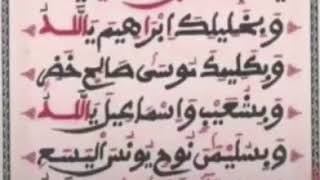 وَبِخَلِيلِكَ اِبْرَاهِيمَ يَااَللّٰهُ
وَبِكَلِيمِكَ مُوسَى صَالِحْ خَضْ
وَبِشُعَيْبِ وَاِسْمَاعِيلَ يَااَللّٰهُ
وَبِسُلَيْمٰنَ نُوحْ يُونُسَ اَلْيَسَعَ